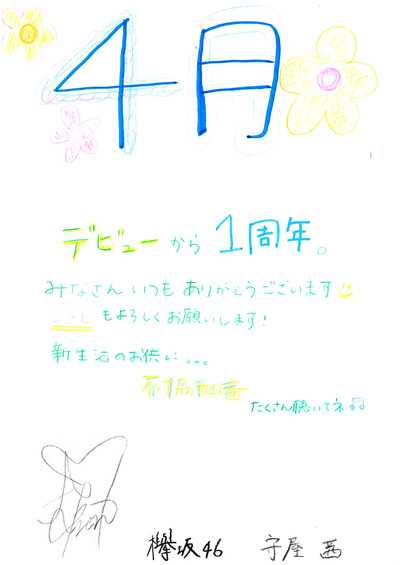 4月
デビューから1周年。
みなさんいつもありがとうございます
もよろしくお願いします!
新生活のお供に...
不協和音
たくさん聴いてネ
欅坂46 守屋茜